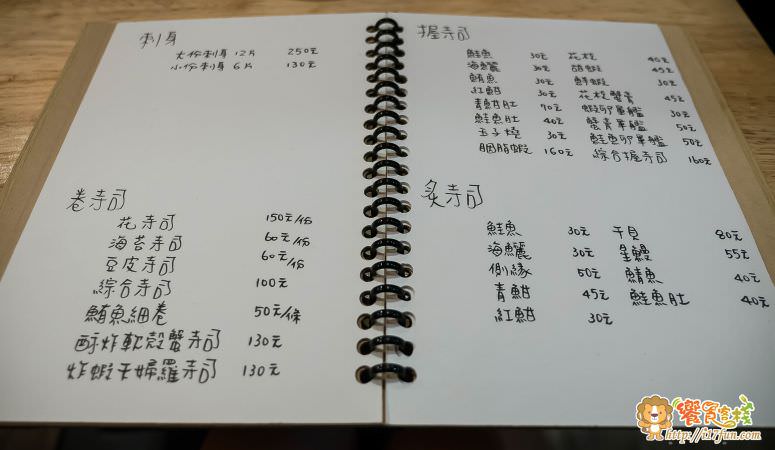 刺身
大份刺身 12片 250元
小份刺身 6片 130元
卷寿司
花寿司 150元/份
海苔寿司 60元/份
豆皮寿司 60元/份
綜合寿司 100元
鮪魚細卷 50元/條
酥炸軟殼蟹寿司 130元
炸蝦天婦羅寿司 130元
握寿司
鮭魚 30元 花枝 40元
海鱺 30元 甜蝦 45元
鮪魚 30元 鮮蝦 30元
紅魽 30元 花枝蟹膏 45元
青魽肚 70元 蝦卵軍艦 30元
鮭魚肚 40元 蟹膏軍艦 50元
玉子燒 30元 鮭魚卵軍艦 50元
胭脂蝦 160元 綜合握寿司 160元
炙寿司
鮭魚 30元 干貝 80元
海鱺 30元 星鰻 55元
側緣 50元 鯖魚 40元
青魽 45元 鮭魚肚 40元
紅魽 30元
饗食客棧
http://i17fun.com/